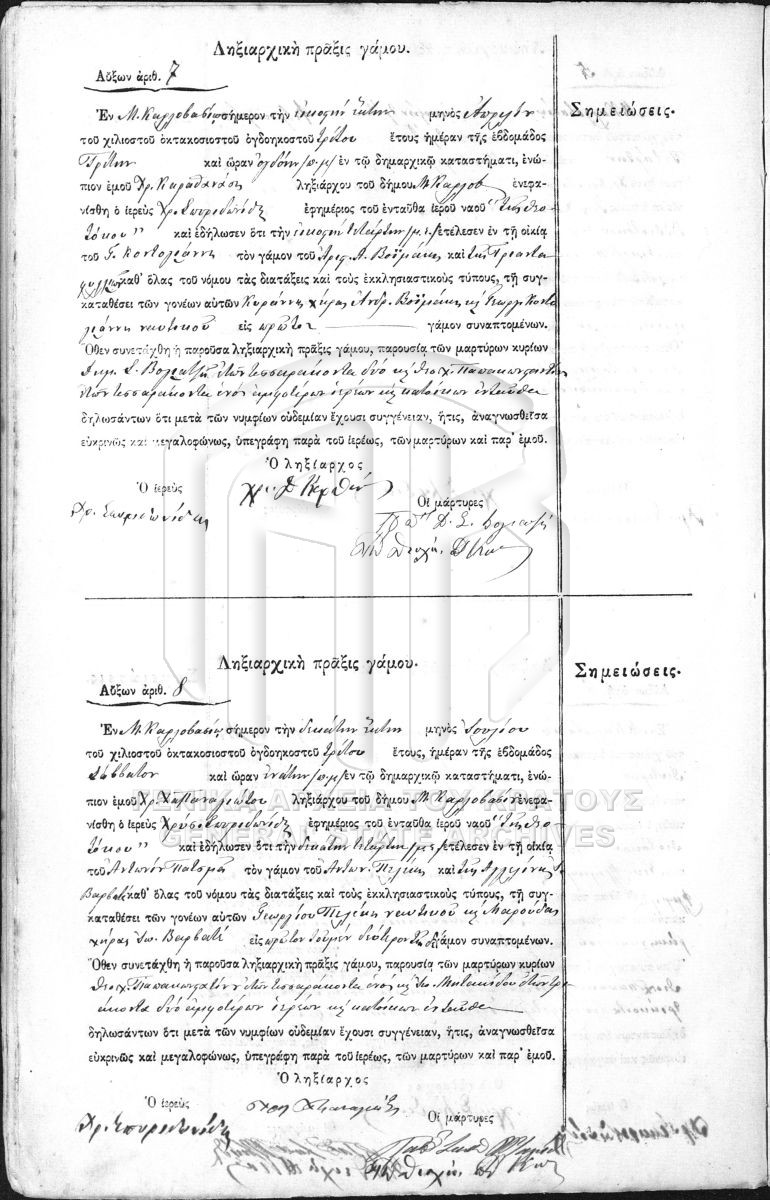 Ληξιαρχικὴ πρᾶξις γάμου.
Αὔξων ἀριθ. 7
Σημειώσεις.
Ἐν Μ. Καρλοβασίῳ σήμερον τὴν εἰκοστὴν ἕκτην μηνὸς Ἀπριλίου
τοῦ χιλιοστοῦ ὀκτακοσιοστοῦ ὀγδοηκοστοῦ τρίτου ἔτους ἡμέραν τῆς ἑβδομάδος
Τρίτην καὶ ὥραν ὀγδόην π.μ. ἐν τῷ δημαρχικῷ καταστήματι, ἐνώ-
πιον ἐμοῦ Χρ. Καραθανάση ληξιάρχου τοῦ δήμου Μ. Καρλοβ. ἐνεφα-
νίσθη ὁ ἱερεὺς Χρ. Σπυριδωνίδης ἐφημέριος τοῦ ἐνταῦθα ἱεροῦ ναοῦ "τῆς Θεο
τόκου" καὶ ἐδήλωσεν ὅτι τὴν εἰκοστὴν τετάρτην ἐτέλεσεν ἐν τῇ οἰκίᾳ
τοῦ Γ. Κοντογιάννη τὸν γάμον τοῦ Α. καὶ τῆς Τριαντα
φυλλιᾶς καθ' ὅλας τοῦ νόμου τὰς διατάξεις καὶ τοὺς ἐκκλησιαστικοὺς τύπους, τῇ συγ-
καταθέσει τῶν γονέων αὐτῶν χήρας Ἀνδρ. Γεωργ. Κοντο
γιάννη ναυτικοῦ εἰς πρῶτον γάμον συναπτομένων.
Ὅθεν συνετάχθη ἡ παροῦσα ληξιαρχικὴ πρᾶξις γάμου, παρουσίᾳ τῶν μαρτύρων κυρίων
Δημ. Σ. ἐτῶν τεσσαράκοντα δύο κ Παπακωνσταντίνου
ἐτῶν τεσσαράκοντα ἑνὸς ἀμφοτέρων ἱερέων κ κατοίκων ἐνταῦθα
δηλωσάντων ὅτι μετὰ τῶν νυμφίων οὐδεμίαν ἔχουσι συγγένειαν, ἥτις, ἀναγνωσθεῖσα
εὐκρινῶς καὶ μεγαλοφώνως, ὑπεγράφη παρὰ τοῦ ἱερέως, τῶν μαρτύρων καὶ παρ' ἐμοῦ.
Ὁ ληξίαρχος
Ὁ ἱερεὺς
Οἱ μάρτυρες
Χρ. Σπυριδωνίδης
Ληξιαρχικὴ πρᾶξις γάμου.
Αὔξων ἀριθ. 8
Σημειώσεις.
Ἐν Μ. Καρλοβασίῳ σήμερον τὴν δεκάτην ἕκτην μηνὸς Ἰουλίου
τοῦ χιλιοστοῦ ὀκτακοσιοστοῦ ὀγδοηκοστοῦ τρίτου ἔτους, ἡμέραν τῆς ἑβδομάδος
Σάββατον καὶ ὥραν ἐνάτην π.μ. ἐν τῷ δημαρχικῷ καταστήματι, ἐνώ-
πιον ἐμοῦ Χρ. Χ"Παναγιώτου ληξιάρχου τοῦ δήμου Μ. Καρλοβασίου ἐνεφα-
νίσθη ὁ ἱερεὺς Χρύσ. Σπυριδωνίδης ἐφημέριος τοῦ ἐνταῦθα ἱεροῦ ναοῦ "τῆς Θεο
τόκου" καὶ ἐδήλωσεν ὅτι τὴν δεκάτην τετάρτην ἐτέλεσεν ἐν τῇ οἰκίᾳ
τοῦ Ἀντωνίου τὸν γάμον τοῦ Ἀντων. καὶ τῆς
καθ' ὅλας τοῦ νόμου τὰς διατάξεις καὶ τοὺς ἐκκλησιαστικοὺς τύπους, τῇ συγ-
καταθέσει τῶν γονέων αὐτῶν Γεωργίου ναυτικοῦ κ Μαρούδας
χήρας εἰς πρῶτον δεύτερον γάμον συναπτομένων.
Ὅθεν συνετάχθη ἡ παροῦσα ληξιαρχικὴ πρᾶξις γάμου, παρουσίᾳ τῶν μαρτύρων κυρίων
ἐτῶν τεσσαράκοντα ἑνὸς κ ἐτῶν τρι
άκοντα δύο ἀμφοτέρων ἱερέων κ κατοίκων ἐνταῦθα
δηλωσάντων ὅτι μετὰ τῶν νυμφίων οὐδεμίαν ἔχουσι συγγένειαν, ἥτις, ἀναγνωσθεῖσα
εὐκρινῶς καὶ μεγαλοφώνως, ὑπεγράφη παρὰ τοῦ ἱερέως, τῶν μαρτύρων καὶ παρ' ἐμοῦ.
Ὁ ληξίαρχος
Ὁ ἱερεὺς
Οἱ μάρτυρες
Χρ. Σπυριδωνίδης
ΓΕΝΙΚΑ ΑΡΧΕΙΑ ΤΟΥ ΚΡΑΤΟΥΣ
GENERAL STATE ARCHIVES